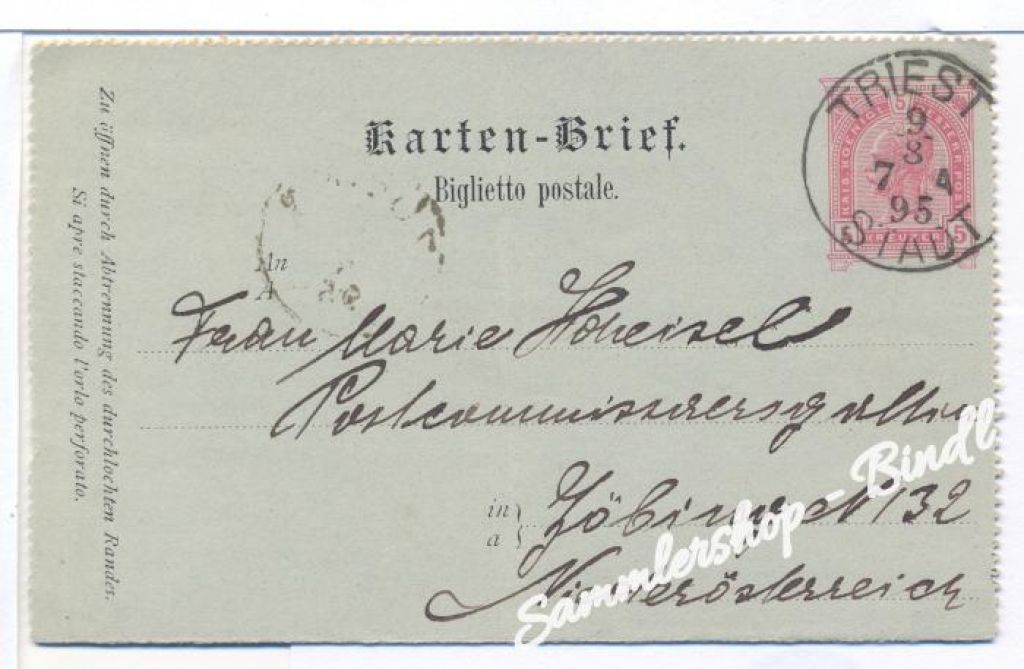 Karten-Brief.
Biglietto postale.
TRIEST
9
8
7 A
95
STADT
KAIS. KOENIGL. OESTERR. POST
5 KREUZER 5
An
A
Frau Marie Hoheisel
Postcommissaersgattin
in
a
Zöbing N 132
Niederösterreich
Zu öffnen durch Abtrennung des durchlochten Randes.
Si apre staccando l'orlo perforato.
Sammlershop-Bindl